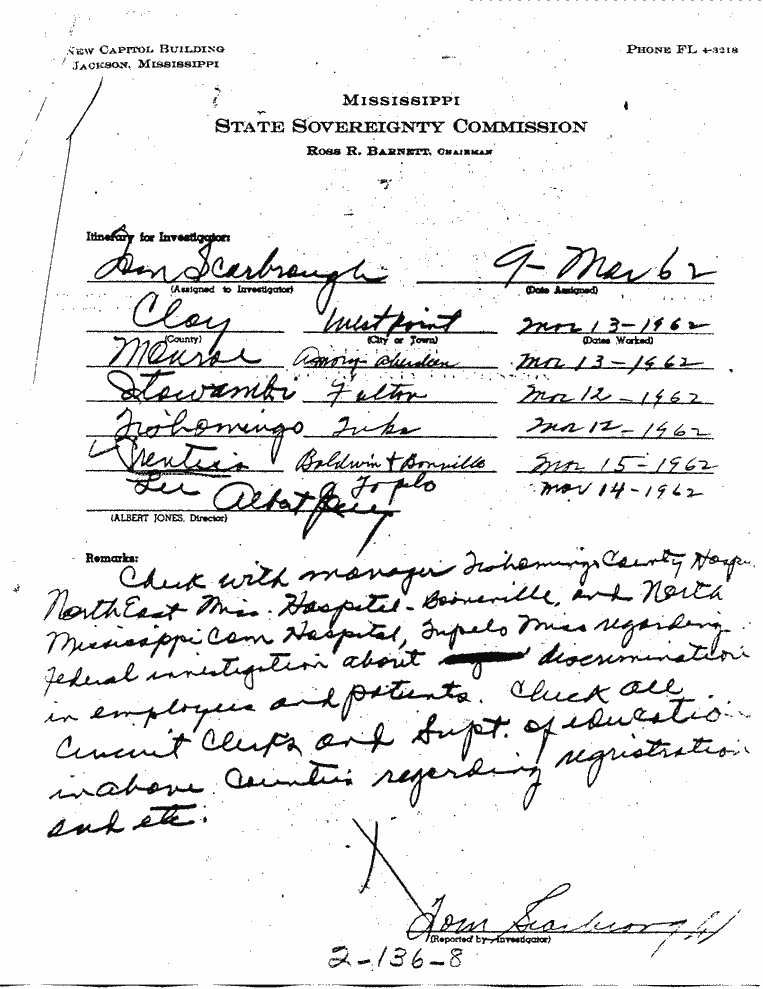 NEW CAPITOL BUILDING
JACKSON, MISSISSIPPI
PHONE FL 4-3218
MISSISSIPPI
STATE SOVEREIGNTY COMMISSION
ROSS R. BARNETT, CHAIRMAN
Itinerary for Investigator:
Tom Scarbrough 9-Mar 62
(Assigned to Investigator) (Date Assigned)
Clay West point Mar 13-1962
(County) (City or Town) (Dates Worked)
Monroe Amory Aberdeen Mar 13-1962
Itawamba Fulton Mar 12-1962
Tishomingo Iuka Mar 12-1962
Prentiss Baldwin & Bonville Mar 15-1962
Lee Toplo Mar 14-1962
Albert Jones
(ALBERT JONES, Director)
Remarks:
Check with manager Tishomingo County Hosp.
NorthEast Miss. Hospital - Booneville, and North
Mississippi Com Hospital, Tupelo Miss regarding
Federal investigation about discrimination
in employees and patients. Check all
Circuit Clerks and Supt. of educatio
in above Counties regarding registration
and etc.
X
Tom Scarbrough
(Reported by Investigator)
2-136-8